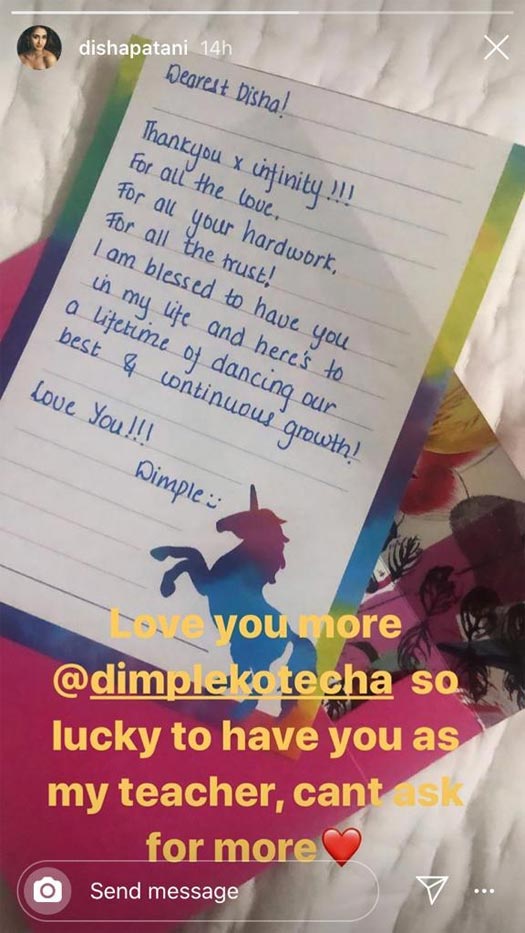 dishapatani 14h
Dearest Disha!
Thankyou x infinity!!!
For all the love.
For all your hardwork.
For all the trust!
I am blessed to have you
in my life and here's to
a lifetime of dancing our
best & continuous growth!
Love You!!!
Dimple :)
Love you more
@dimplekotecha so
lucky to have you as
my teacher, cant ask
for more❤️
Send message